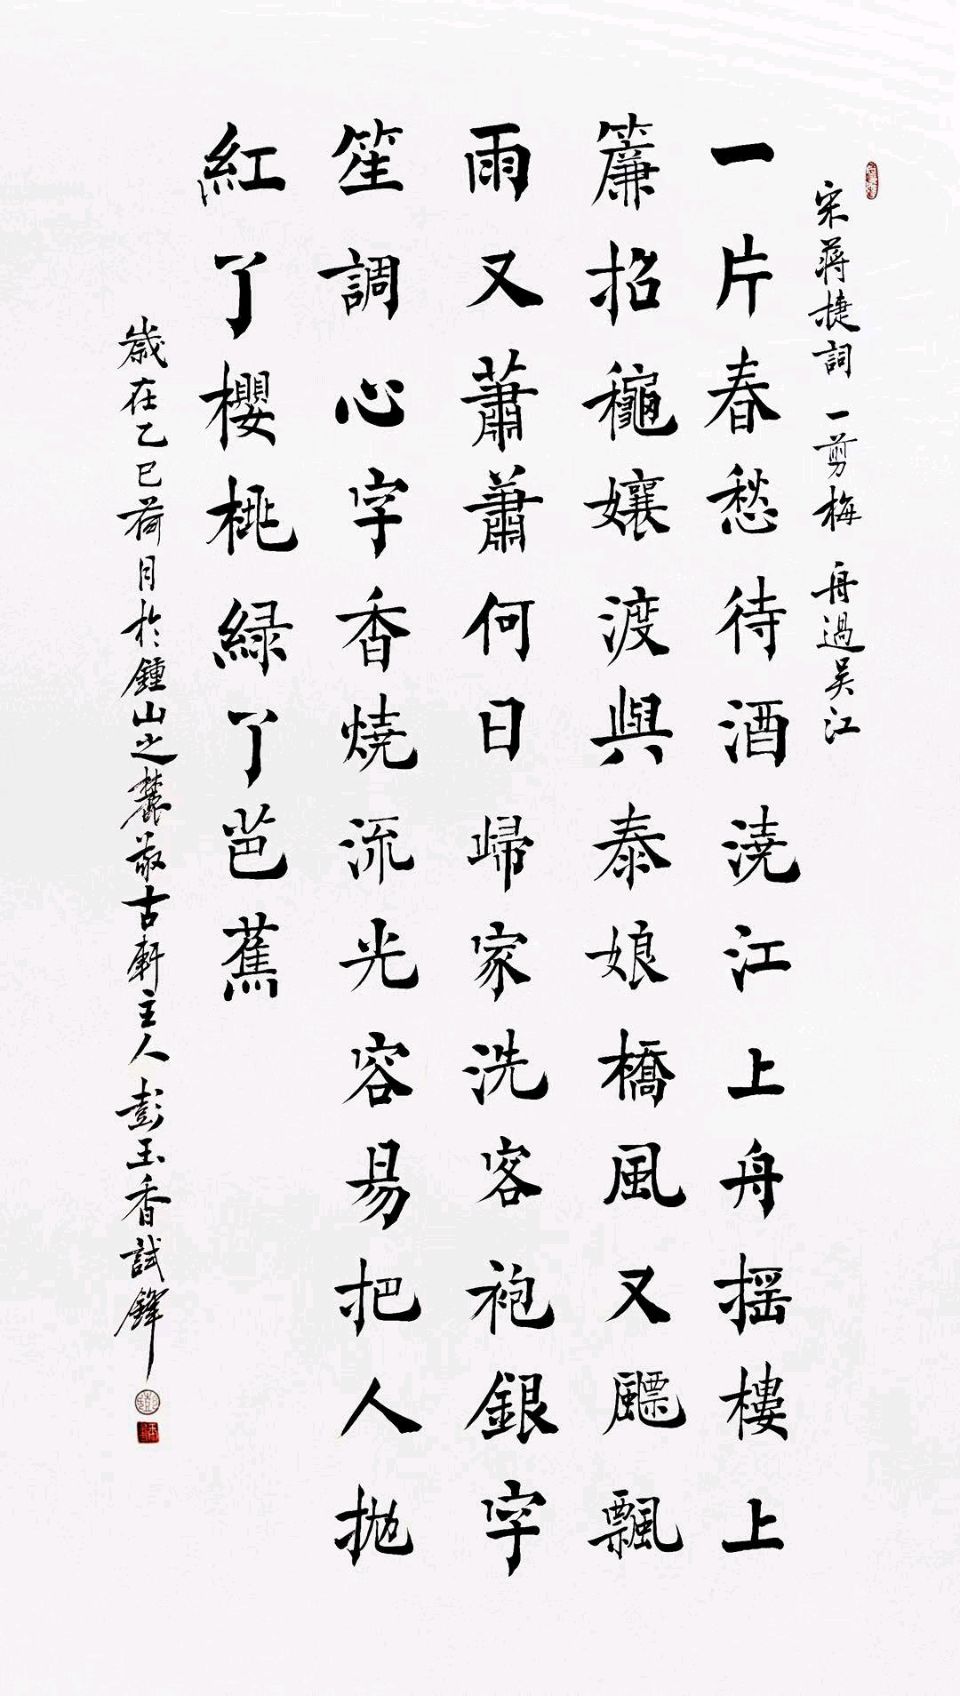 宋蔣捷詞 一剪梅 舟過吴江
一片春愁待酒澆江上舟摇樓上
簾招龝孃渡與泰娘橋風又飃飄
雨又蕭蕭何日歸家洗客袍銀字
笙調心字香燒流光容易把人拋
紅了櫻桃緑了芭蕉
歲在乙巳荷月於鍾山之麓敬古軒主人彭玉香試鋒